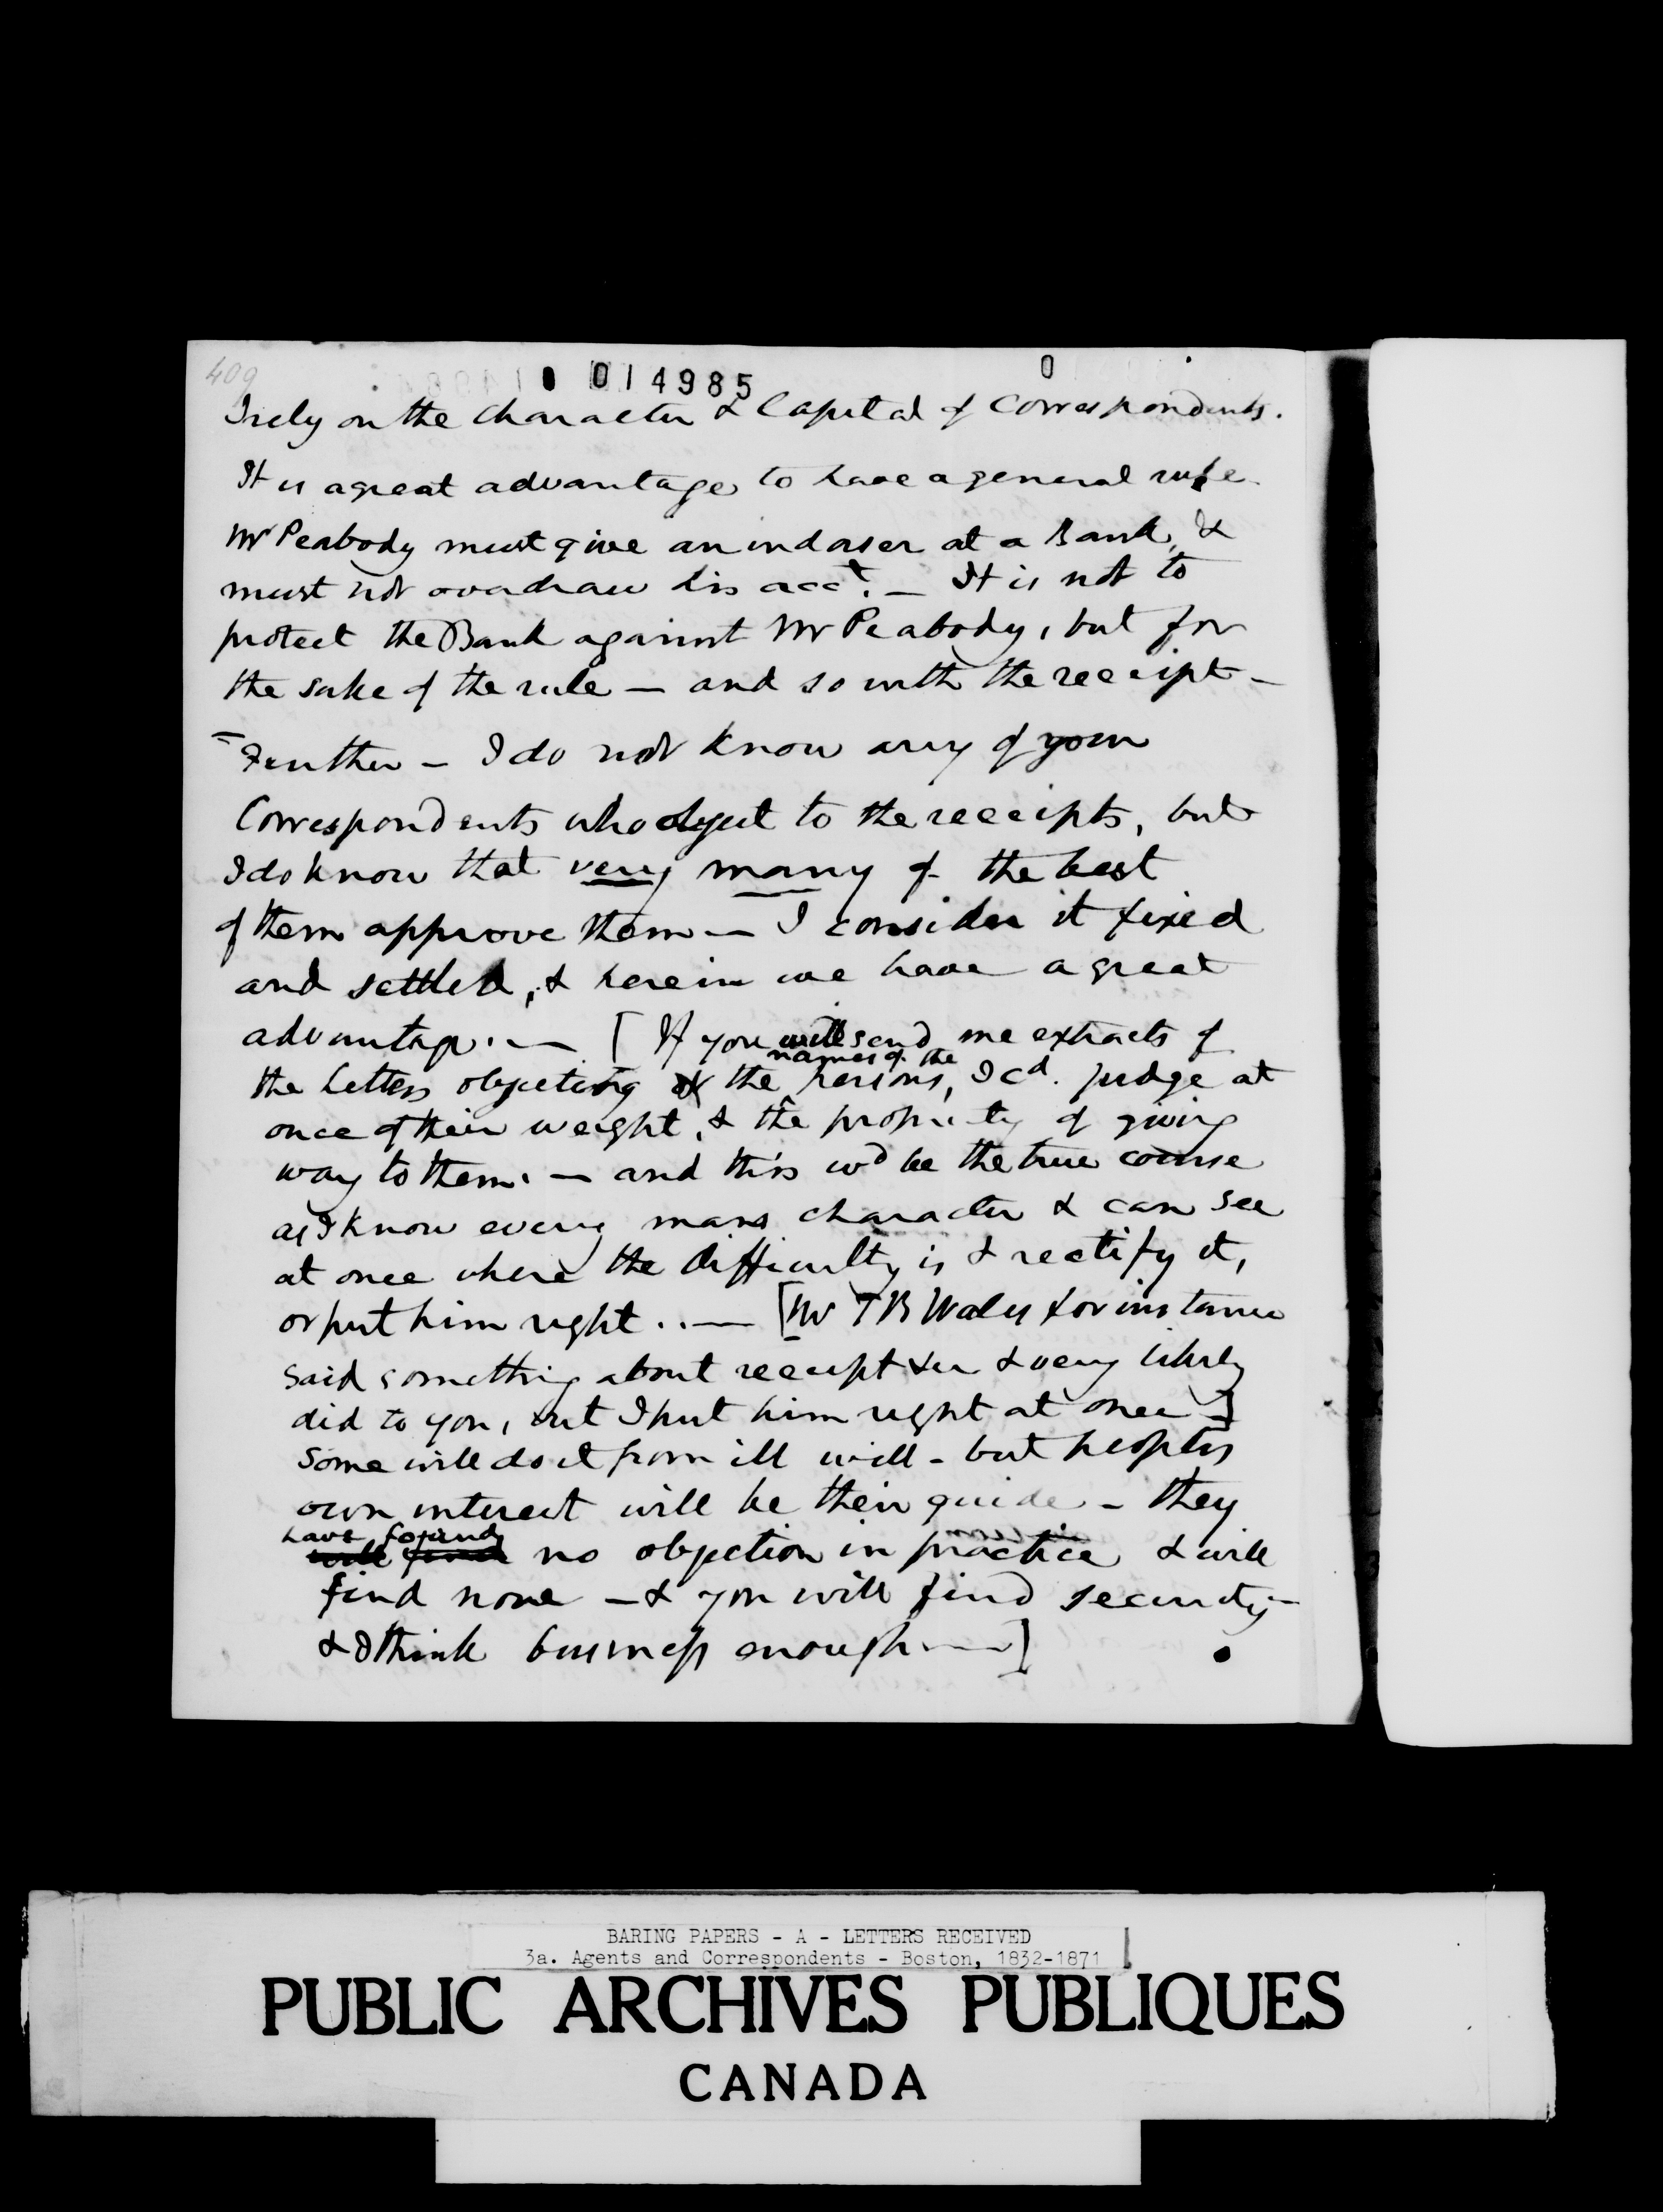 409
014985
0
I rely on the Character & Capital of Correspondents.
It is a great advantage to have a general rule.
Mr Peabody must give an indorser at a Bank, &
must not overdraw his acct. — It is not to
protect the Bank against Mr Peabody, but for
the sake of the rule — and so with the receipt —
Further — I do not know any of your
Correspondents who object to the receipts, but
I do know that very many of the best
of them approve them — I consider it fixed
and settled, & herein we have a great
advantage. — [If you will send me extracts of
names of the
the letters objecting & the persons, I cd. judge at
once of their weight, & the propriety of giving
way to them. — and this wd be the true course
as I know every mans character & can see
at once where the difficulty is & rectify it,
or put him right .. — [Mr T B Wales for instance
said something about receipt & very likely
did to you, but I put him right at once —]
Some will do it from ill will — but peoples
own interest will be their guide — they
have found
will find no objection in practice & will
find none — & you will find security —
& I think business enough —]
BARING PAPERS - A - LETTERS RECEIVED
3a. Agents and Correspondents - Boston, 1832-1871
PUBLIC ARCHIVES PUBLIQUES
CANADA